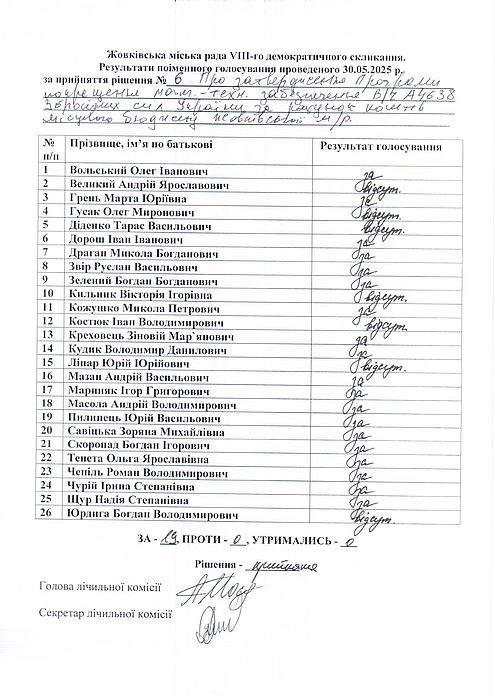 Жовківська міська рада VIII-го демократичного скликання.
Результати поіменного голосування проведеного 30.05.2025 р.
за прийняття рішення № 6 Про затвердження Програми
покращення мат.-техн. забезпечення В/Ч А4638
Збройних сил України за рахунок коштів
місцевого бюджету Жовківської м/р.
№ п/п Прізвище, ім’я по батькові Результат голосування
1 Вольський Олег Іванович за
2 Великий Андрій Ярославович відсут.
3 Грень Марта Юріївна за
4 Гусак Олег Миронович відсут.
5 Діденко Тарас Васильович відсут.
6 Дорош Іван Іванович за
7 Драган Микола Богданович за
8 Звір Руслан Васильович за
9 Зелений Богдан Богданович за
10 Кильник Вікторія Ігорівна відсут.
11 Кожушко Микола Петрович за
12 Костюк Іван Володимирович відсут.
13 Креховець Зіновій Мар`янович за
14 Кудик Володимир Данилович за
15 Ліпар Юрій Юрійович відсут.
16 Мазан Андрій Васильович за
17 Мариняк Ігор Григорович за
18 Масола Андрій Володимирович за
19 Пилипець Юрій Васильович за
20 Савіцька Зоряна Михайлівна за
21 Скоропад Богдан Ігорович за
22 Тенета Ольга Ярославівна за
23 Чепіль Роман Володимирович за
24 Чурій Ірина Степанівна за
25 Щур Надія Степанівна за
26 Юрдига Богдан Володимирович відсут.
ЗА - 19, ПРОТИ - 0, УТРИМАЛИСЬ - 0
Рішення - прийнято
Голова лічильної комісії
Секретар лічильної комісії